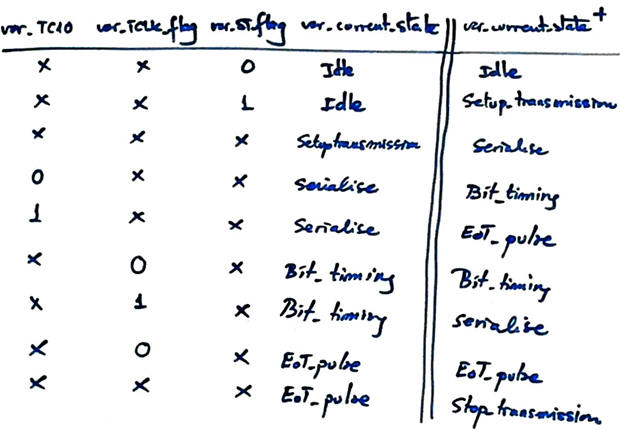 var_TC10 var_TCLK_flag var_ST_flag var_current_state var_current_state+
x x 0 Idle Idle
x x 1 Idle Setup_transmission
x x x Setuptransmission Serialise
0 x x Serialise Bit_timing
1 x x Serialise EoT_pulse
x 0 x Bit_timing Bit_timing
x 1 x Bit_timing Serialise
x 0 x EoT_pulse EoT_pulse
x x x EoT_pulse Stop transmission